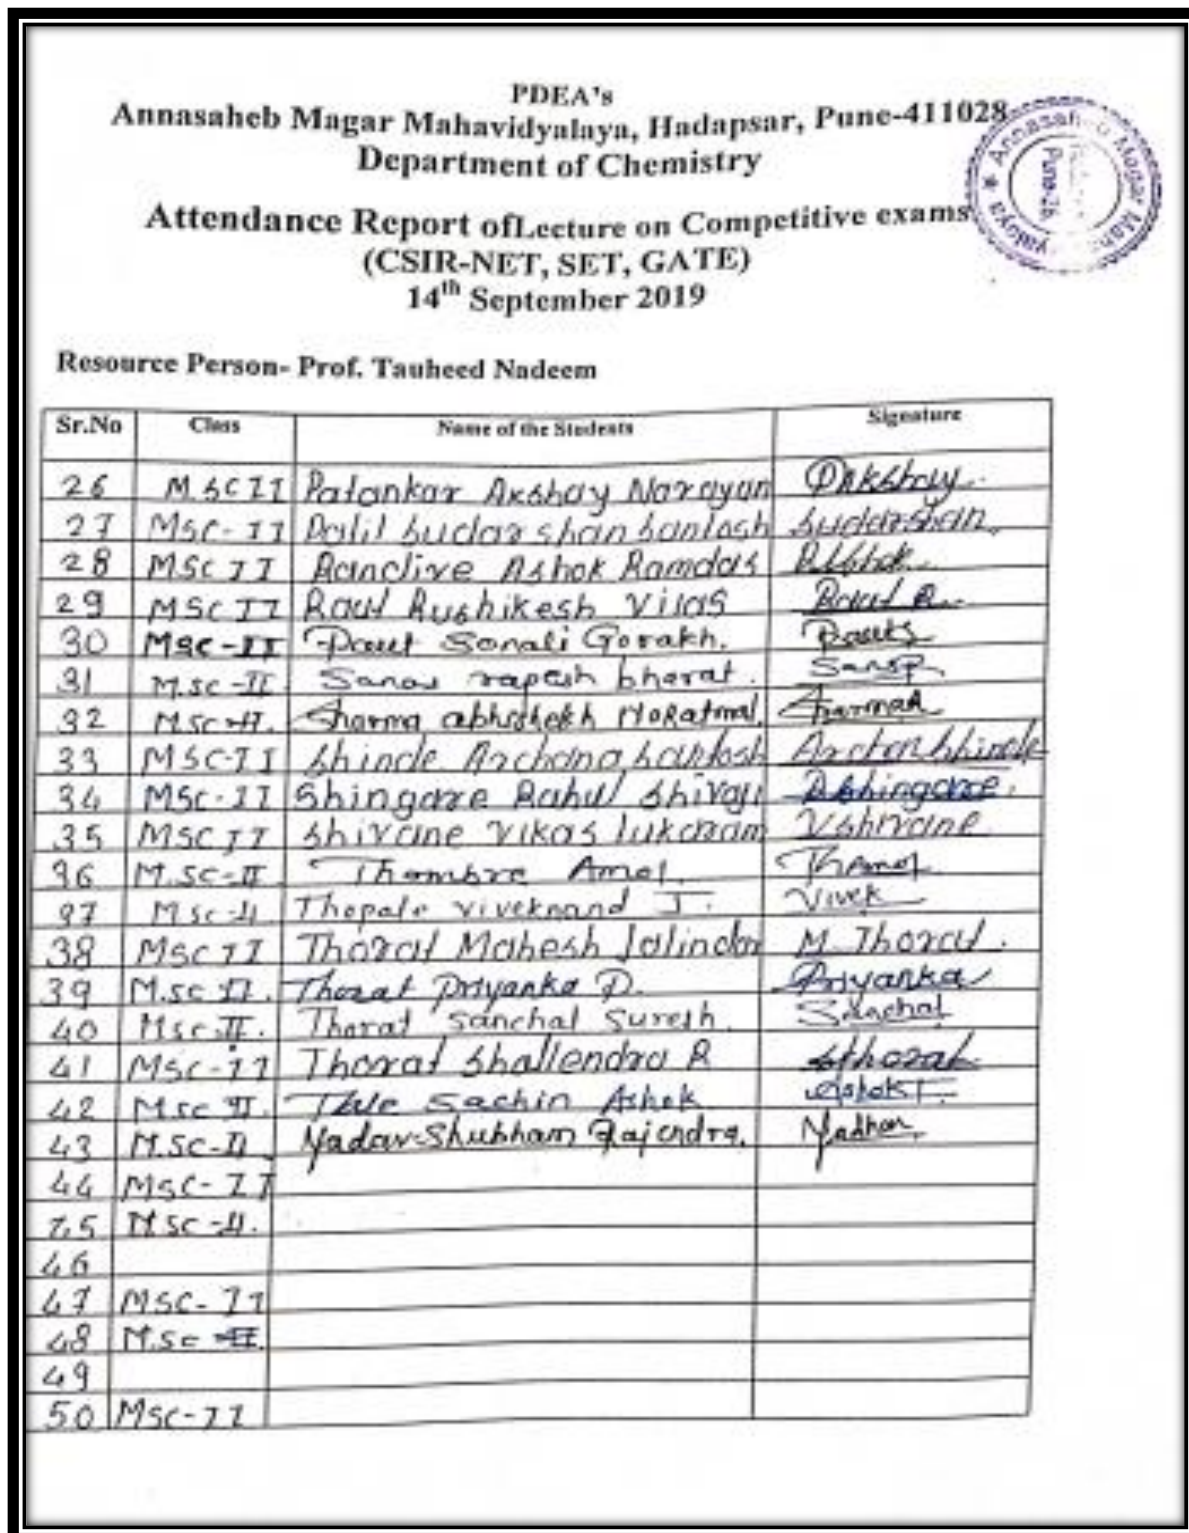 PDEA's
Annasaheb Magar Mahavidyalaya, Hadapsar, Pune-411028
Department of Chemistry
Annasaheb Magar Mahavidyalaya
Pune-28
Attendance Report ofLecture on Competitive exams
(CSIR-NET, SET, GATE)
14th September 2019
Resource Person- Prof. Tauheed Nadeem
Sr.No Class Name of the Students Signature
26 M.SC II Patankar Akshay Narayan PAkshay
27 MSC-II Patil Sudarshan Santosh Sudarshan
28 MSC II Randive Ashok Ramdas RAshok
29 MSC II Raut Rushikesh Vilas Raut R.
30 MSC-II Raut Sonali Gorakh. Rauts
31 M.SC-II Sanas rupesh bharat.
32 M.SC-II. Sharma abhishekh Sharmaa
33 MSC-II Shinde Archana Santosh Archanshinde
34 MSC-II Shingare Rahul Shivaji RShingare.
35 MSC II Shivane Vikas Tukaram VShivane
36 M.SC-II Thombre Amol.
37 MSC-II Thopale viveknand J. Vivek
38 MSC II Thorat Mahesh Jalindar M. Thorat.
39 M.SC II. Thorat Priyanka D. Priyanka
40 MSC.II. Thorat Sanchal Suresh. Sanchal
41 MSC-II Thorat Shailendra R sthorat
42 MSC II. Tale Sachin Ashok
43 M.SC-II Yadav Shubham Rajendra. Yadhav
44 MSC-II
45 MSC-II.
46
47 MSC-II
48 M.SC-II.
49
50 MSC-II